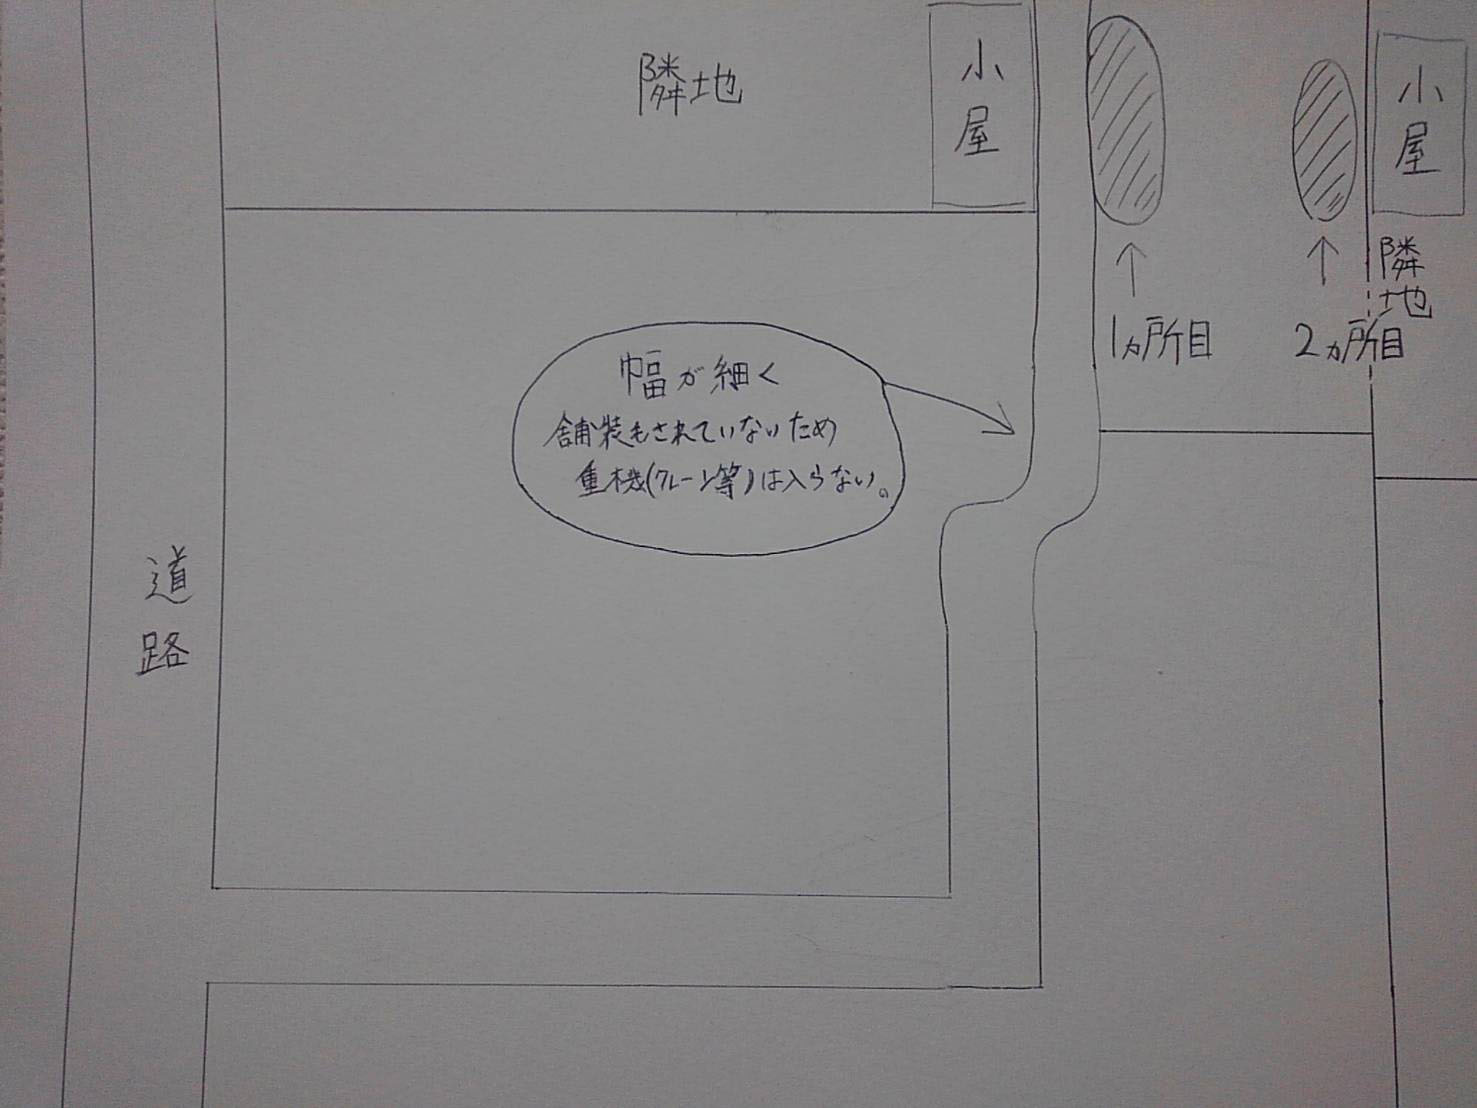 隣地
小屋
小屋
隣地
1ヵ所目
2ヵ所目
幅が細く
舗装もされていないため
重機(クレーン等)は入らない。
道路